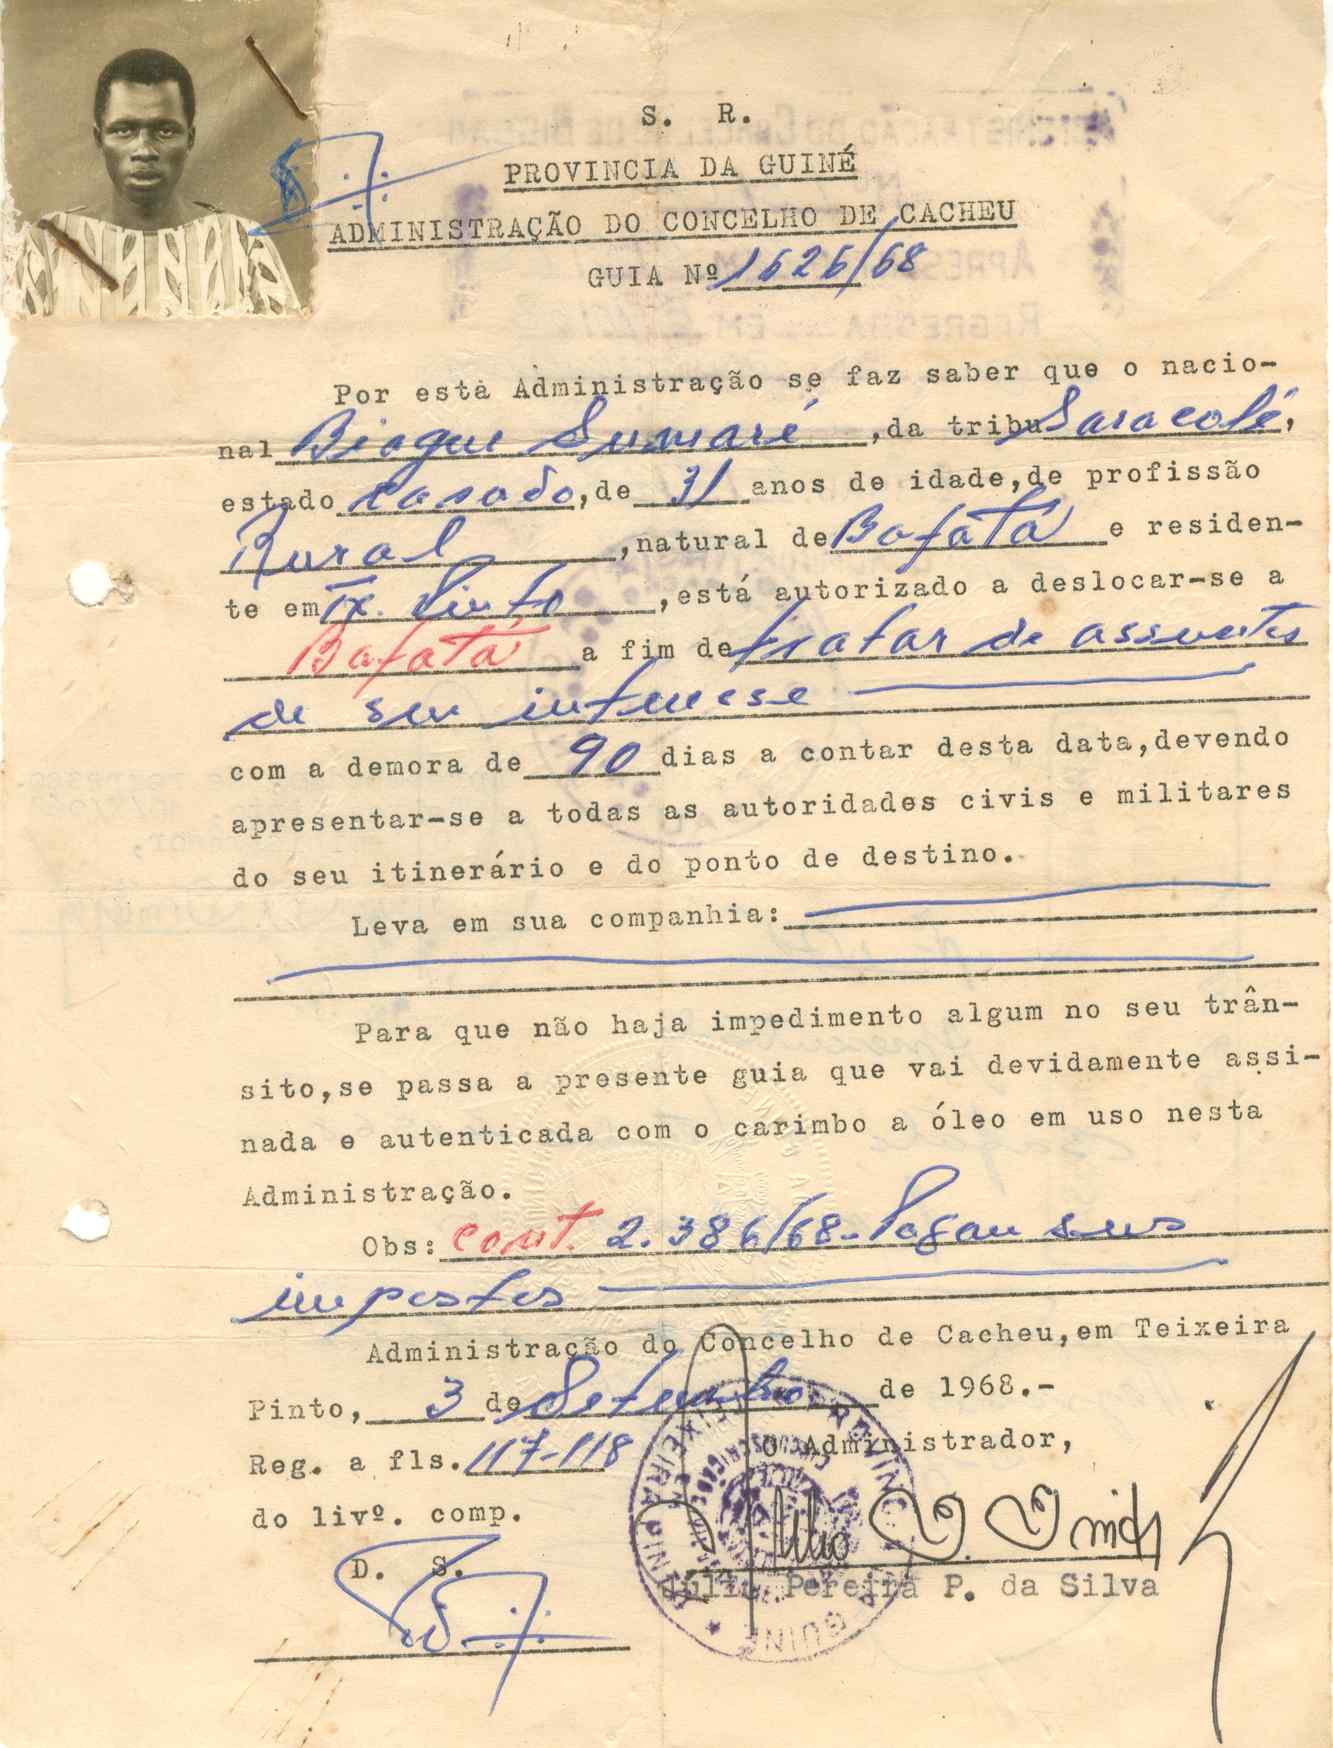 S. R.
PROVINCIA DA GUINÉ
ADMINISTRAÇÃO DO CONCELHO DE CACHEU
GUIA Nº 1626/68
Por esta Administração se faz saber que o nacio-
nal Biague Sumaré, da tribu Saracolé,
estado casado, de 31 anos de idade, de profissão
Rural, natural de Bafatá e residen-
te em Tx. Pinto, está autorizado a deslocar-se a
Bafatá a fim de tratar de assuntos
de seu interesse
com a demora de 90 dias a contar desta data, devendo
apresentar-se a todas as autoridades civis e militares
do seu itinerário e do ponto de destino.
Leva em sua companhia:
Para que não haja impedimento algum no seu trân-
sito, se passa a presente guia que vai devidamente assi-
nada e autenticada com o carimbo a óleo em uso nesta
Administração.
Obs: cont. 2.386/68 - Pagou seus
impostos
Administração do Concelho de Cacheu, em Teixeira
Pinto, 3 de Setembro de 1968.-
Reg. a fls. 117-118 O Administrador,
do livº. comp.
D. S.
Júlio Pereira P. da Silva